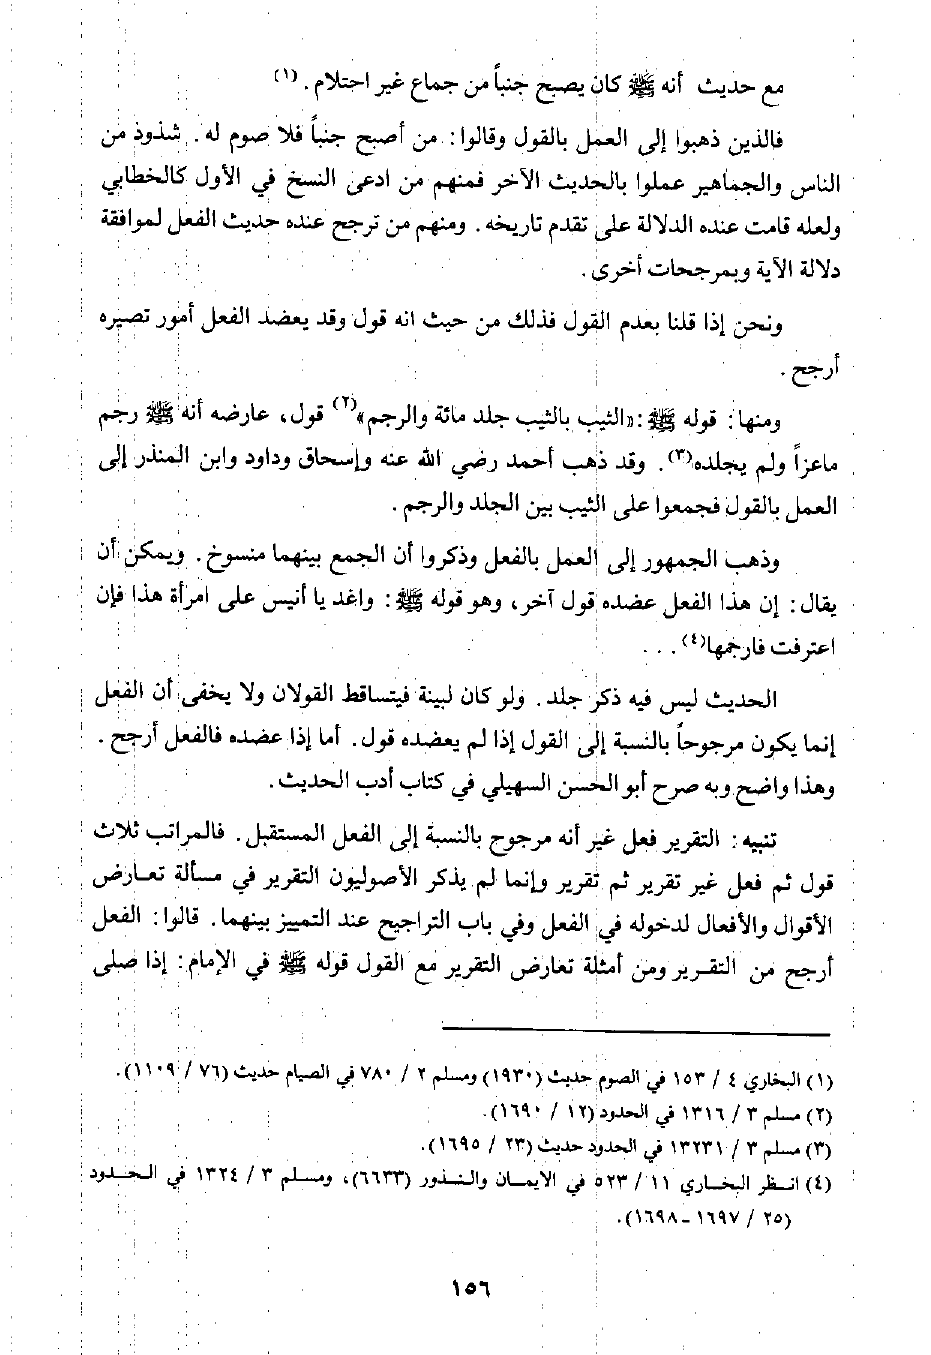 مع حديث أنه ﷺ كان يصبح جنباً من جماع غير احتلام. (١)
فالذين ذهبوا إلى العمل بالقول وقالوا: من أصبح جنباً فلا صوم له. شذوذ من
الناس والجماهير عملوا بالحديث الآخر فمنهم من ادعى النسخ في الأول كالخطابي
ولعله قامت عنده الدلالة على تقدم تاريخه. ومنهم من ترجح عنده حديث الفعل لموافقة
دلالة الآية وبمرجحات أخرى.
ونحن إذا قلنا بعدم القول فذلك من حيث انه قول وقد يعضد الفعل أمور تصيره
أرجح.
ومنها: قوله ﷺ: «الثيب بالثيب جلد مائة والرجم»(٢) قول، عارضه أنه ﷺ رجم
ماعزاً ولم يجلده(٣). وقد ذهب أحمد رضي الله عنه وإسحاق وداود وابن المنذر إلى
العمل بالقول فجمعوا على الثيب بين الجلد والرجم.
وذهب الجمهور إلى العمل بالفعل وذكروا أن الجمع بينهما منسوخ. ويمكن أن
يقال: إن هذا الفعل عضده قول آخر، وهو قوله ﷺ: واغد يا أنيس على امرأة هذا فإن
اعترفت فارجمها(٤)...
الحديث ليس فيه ذكر جلد. ولو كان لبينة فيتساقط القولان ولا يخفى أن الفعل
إنما يكون مرجوحاً بالنسبة إلى القول إذا لم يعضده قول. أما إذا عضده فالفعل أرجح.
وهذا واضح وبه صرح أبو الحسن السهيلي في كتاب أدب الحديث.
تنبيه: التقرير فعل غير أنه مرجوح بالنسبة إلى الفعل المستقبل. فالمراتب ثلاث
قول ثم فعل غير تقرير ثم تقرير وإنما لم يذكر الأصوليون التقرير في مسألة تعارض
الأقوال والأفعال لدخوله في الفعل وفي باب التراجيح عند التمييز بينهما. قالوا: الفعل
أرجح من التقرير ومن أمثلة تعارض التقرير مع القول قوله ﷺ في الإمام: إذا صلى
(١) البخاري ٤ / ١٥٣ في الصوم حديث (١٩٣٠) ومسلم ٢ / ٧٨٠ في الصيام حديث (٧٦ / ١١٠٩).
(٢) مسلم ٣ / ١٣١٦ في الحدود (١٢ / ١٦٩٠).
(٣) مسلم ٣ / ١٣٢٣١ في الحدود حديث (٢٣ / ١٦٩٥).
(٤) انظر البخاري ١١ / ٥٢٣ في الايمان والنذور (٦٦٣٣)، ومسلم ٣ / ١٣٢٤ في الحدود
(٢٥ / ١٦٩٧ - ١٦٩٨).
١٥٦